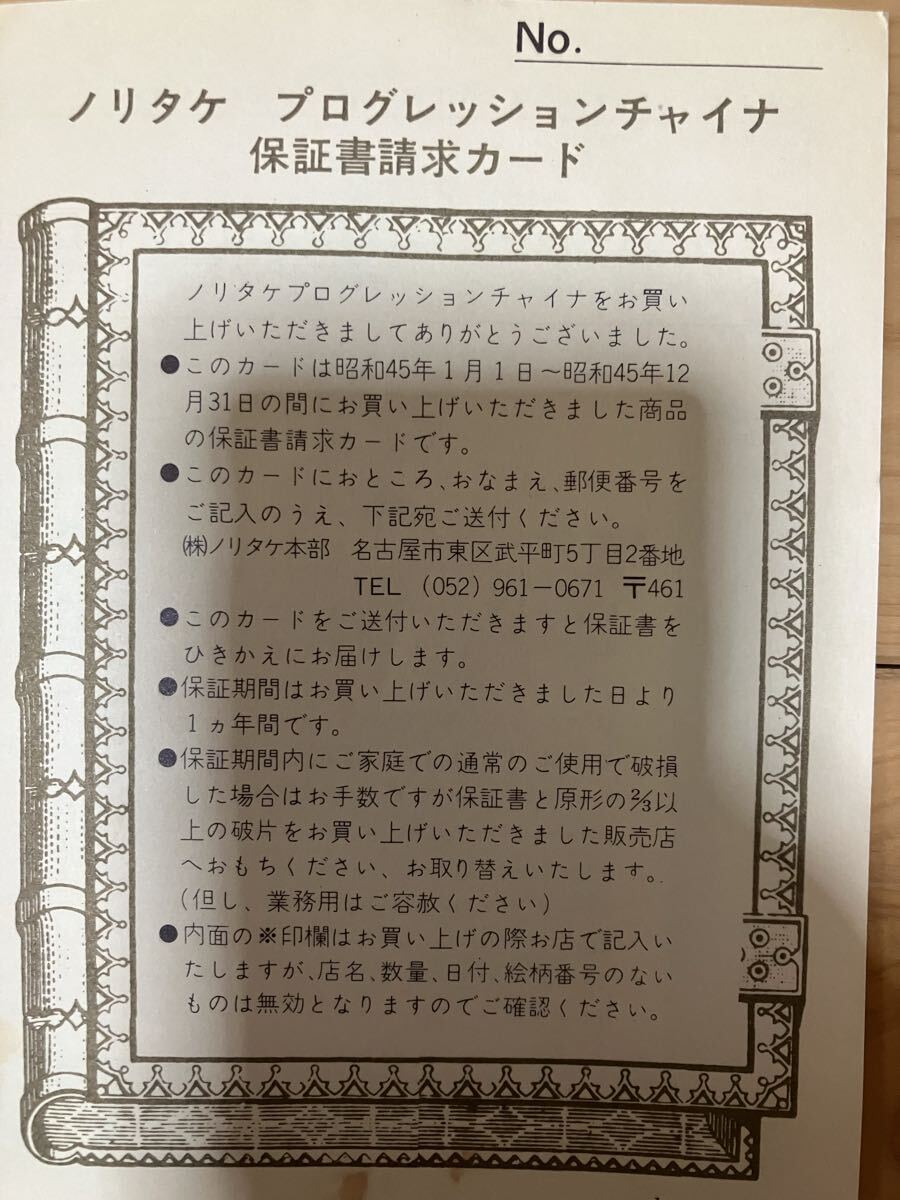 No.
ノリタケ　プログレッションチャイナ
保証書請求カード
ノリタケプログレッションチャイナをお買い
上げいただきましてありがとうございました。
●このカードは昭和45年1月1日〜昭和45年12
月31日の間にお買い上げいただきました商品
の保証書請求カードです。
●このカードにおところ、おなまえ、郵便番号を
ご記入のうえ、下記宛ご送付ください。
㈱ノリタケ本部　名古屋市東区武平町5丁目2番地
TEL (052) 961-0671 〒461
●このカードをご送付いただきますと保証書を
ひきかえにお届けします。
●保証期間はお買い上げいただきました日より
1ヵ年間です。
●保証期間内にご家庭での通常のご使用で破損
した場合はお手数ですが保証書と原形の⅔以
上の破片をお買い上げいただきました販売店
へおもちください、お取り替えいたします。
(但し、業務用はご容赦ください)
●内面の※印欄はお買い上げの際お店で記入い
たしますが、店名、数量、日付、絵柄番号のない
ものは無効となりますのでご確認ください。